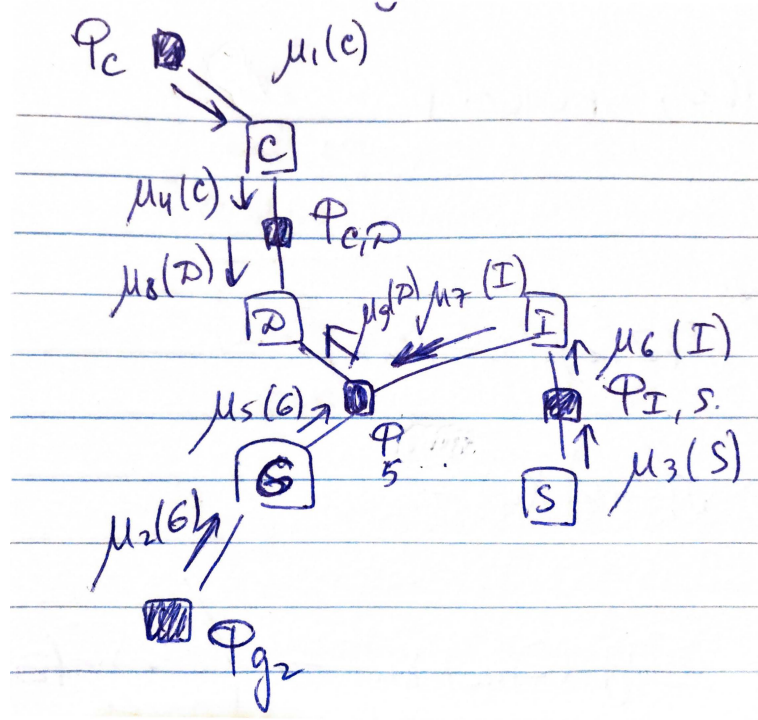 φc μ1(C)
C
μ4(C) φC,D
μ8(D)
D μ9(D) μ7(I) I
μ6(I)
μ5(G) φI,S.
φ
5
G μ3(S)
S
μ2(G)
φg2